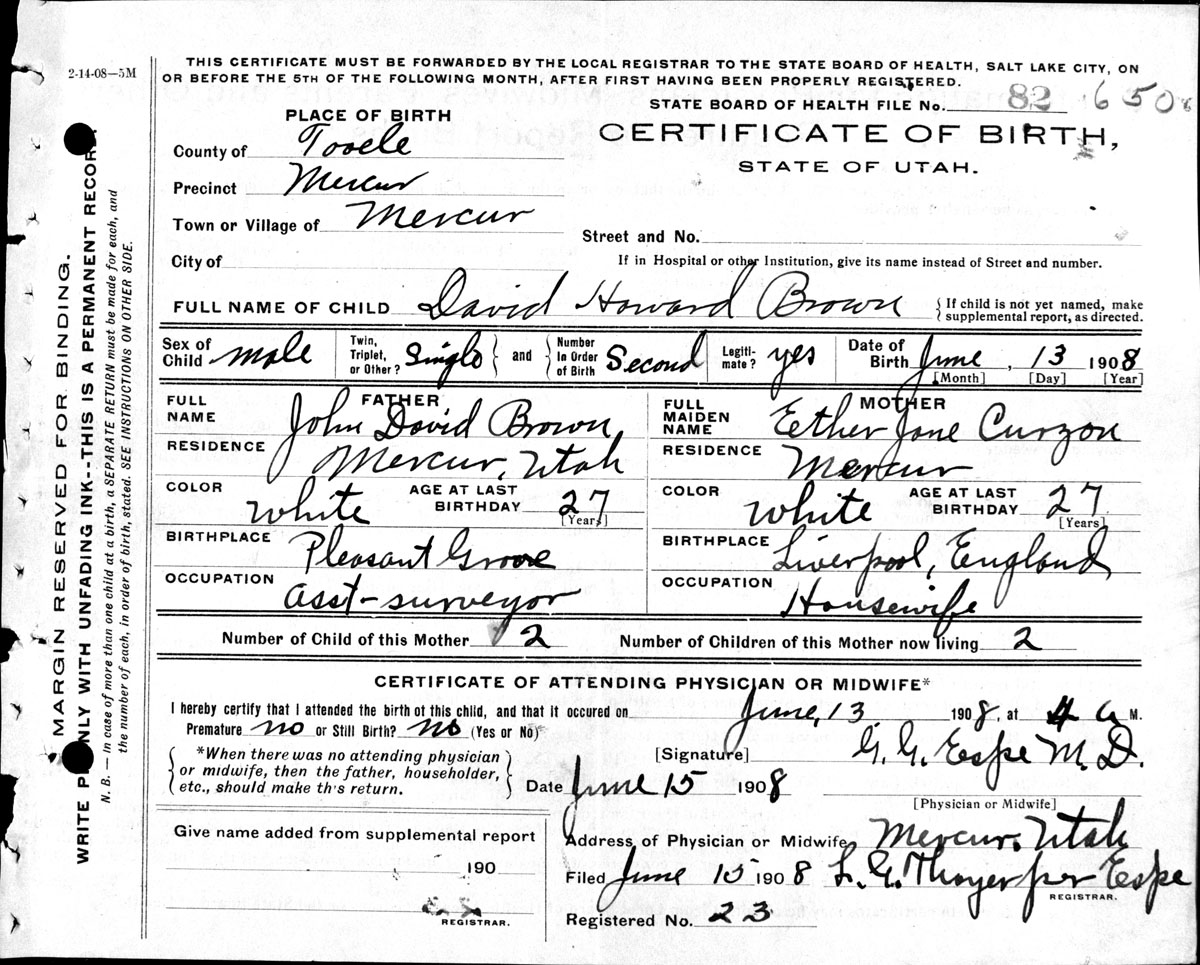 2-14-08—5M
THIS CERTIFICATE MUST BE FORWARDED BY THE LOCAL REGISTRAR TO THE STATE BOARD OF HEALTH, SALT LAKE CITY, ON
OR BEFORE THE 5TH OF THE FOLLOWING MONTH, AFTER FIRST HAVING BEEN PROPERLY REGISTERED.
STATE BOARD OF HEALTH FILE No. 82 650
CERTIFICATE OF BIRTH,
STATE OF UTAH.
PLACE OF BIRTH
County of Tooele
Precinct Mercur
Town or Village of Mercur
Street and No.
City of
If in Hospital or other Institution, give its name instead of Street and number.
FULL NAME OF CHILD David Howard Brown { If child is not yet named, make
supplemental report, as directed.
Sex of Child male Twin, Triplet, or Other? Single } and { Number In Order of Birth Second Legiti- mate? yes Date of Birth June, 13 1908
[Month] [Day] [Year]
FATHER
FULL NAME John David Brown
RESIDENCE Mercur, Utah
COLOR White AGE AT LAST BIRTHDAY 27
[Years]
BIRTHPLACE Pleasant Grove
OCCUPATION asst-surveyor
MOTHER
FULL MAIDEN NAME Esther Jane Curzon
RESIDENCE Mercur
COLOR White AGE AT LAST BIRTHDAY 27
[Years]
BIRTHPLACE Liverpool, England
OCCUPATION Housewife
Number of Child of this Mother 2 Number of Children of this Mother now living 2
CERTIFICATE OF ATTENDING PHYSICIAN OR MIDWIFE*
I hereby certify that I attended the birth of this child, and that it occured on June, 13 1908, at 4 a M.
Premature no or Still Birth? no (Yes or No)
{ *When there was no attending physician
or midwife, then the father, householder,
etc., should make this return. }
[Signature] G. G. Espe M. D.
Date June 15 1908
[Physician or Midwife]
Give name added from supplemental report
190
REGISTRAR.
Address of Physician or Midwife Mercur, Utah
Filed June 15 1908 L. G. Thayer per Espe
REGISTRAR.
Registered No. 23
MARGIN RESERVED FOR BINDING.
WRITE P NLY WITH UNFADING INK--THIS IS A PERMANENT RECOR .
N. B. — In case of more than one child at a birth, a SEPARATE RETURN must be made for each, and
the number of each, in order of birth, stated. SEE INSTRUCTIONS ON OTHER SIDE.